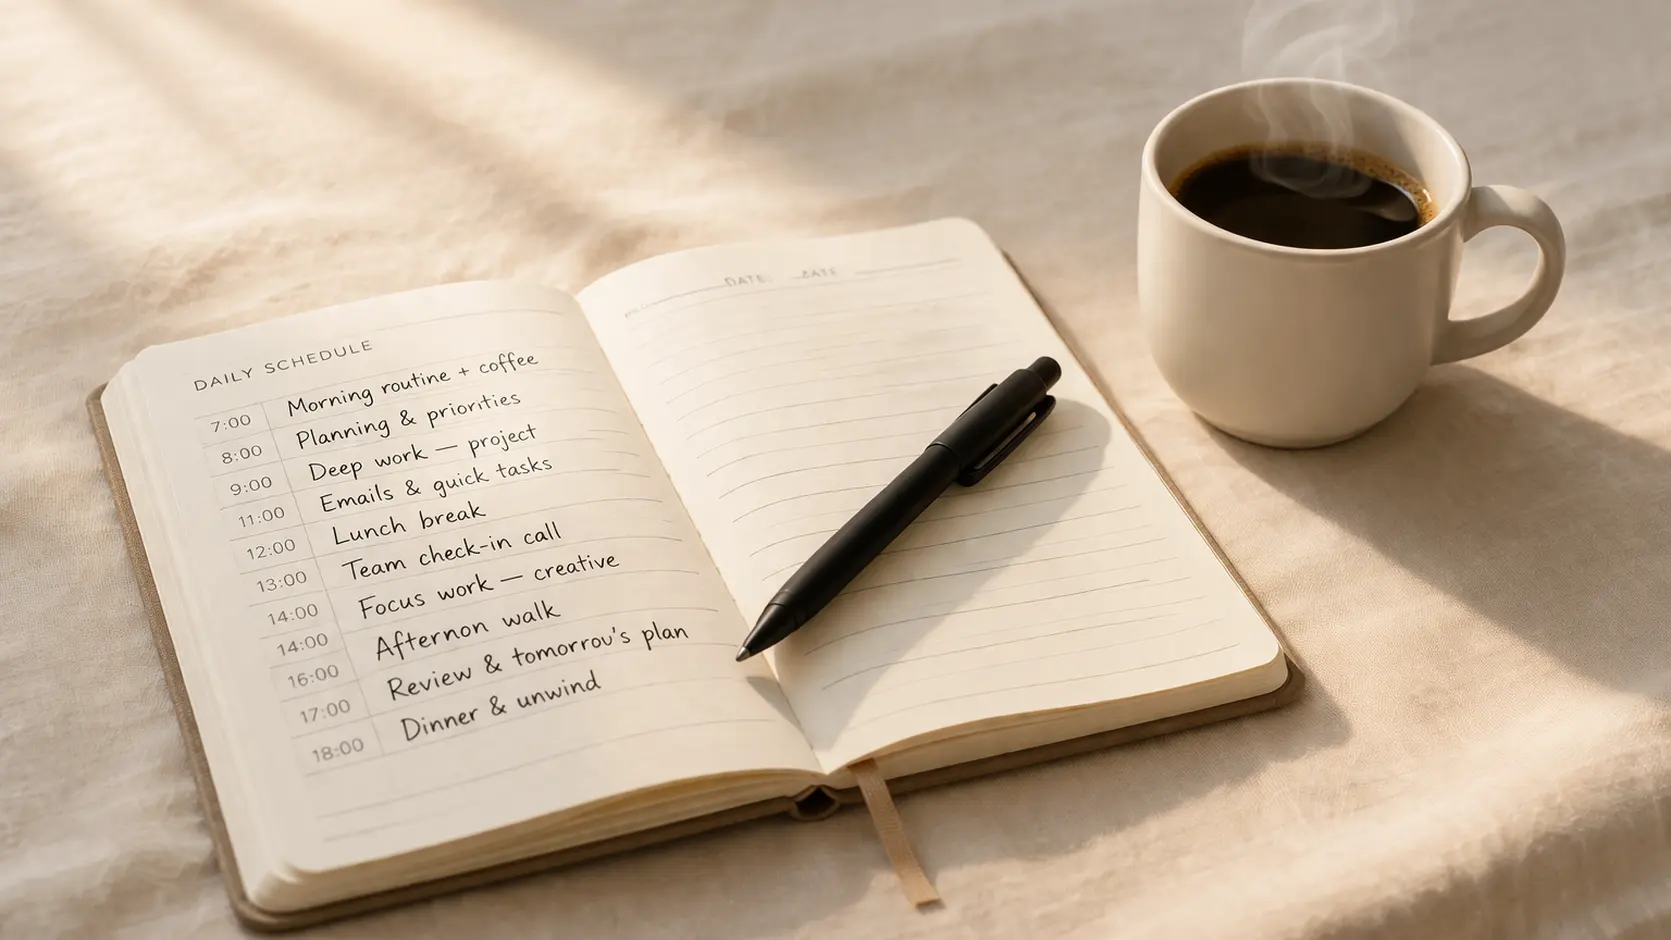 DAILY SCHEDULE
7:00 Morning routine + coffee
8:00 Planning & priorities
9:00 Deep work — project
11:00 Emails & quick tasks
12:00 Lunch break
13:00 Team check-in call
14:00 Focus work — creative
14:00
16:00 Afternon walk
17:00 Review & tomorrou's plan
18:00 Dinner & unwind
DATE: